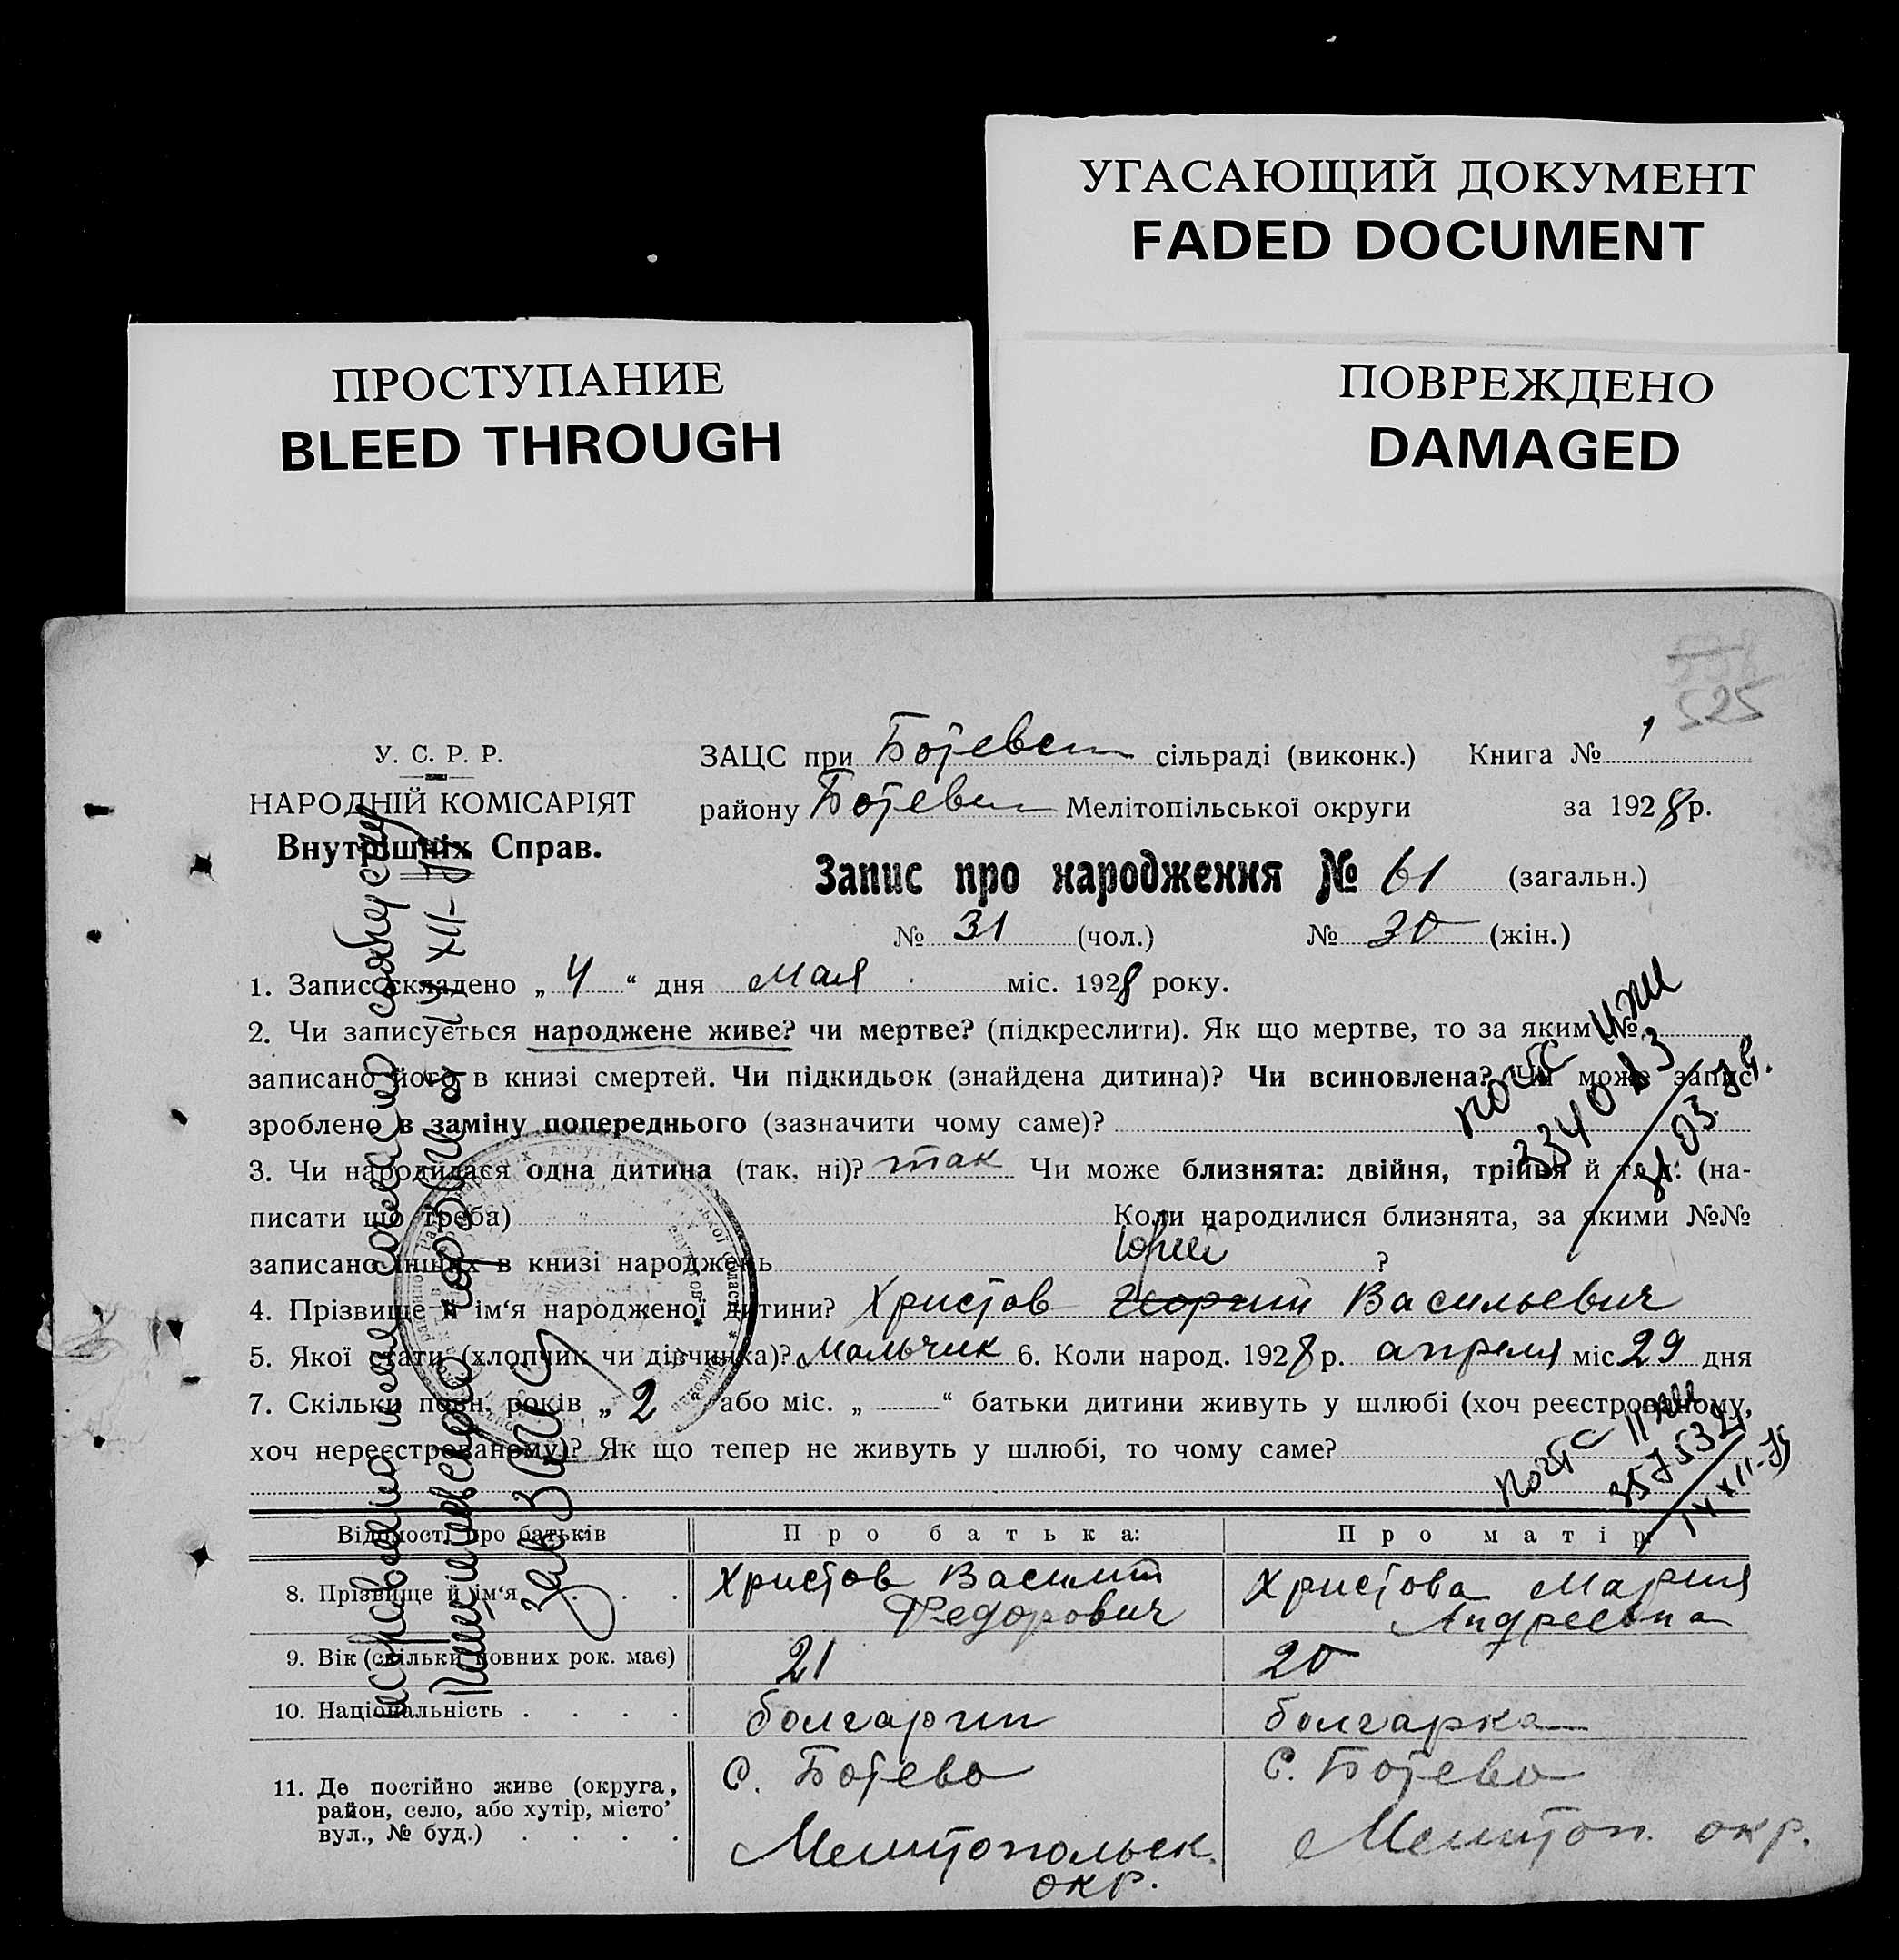 УГАСАЮЩИЙ ДОКУМЕНТ
FADED DOCUMENT
ПРОСТУПАНИЕ
BLEED THROUGH
ПОВРЕЖДЕНО
DAMAGED
525
У. С. Р. Р.
НАРОДНІЙ КОМІСАРІЯТ
Внутрішніх Справ.
ЗАЦС при Ботевск сільраді (виконк.) Книга № 1
району Ботевск Мелітопільської округи за 1928 р.
Запис про народження № 61 (загальн.)
№ 31 (чол.) № 30 (жін.)
1. Запис складено „ 4 “ дня мая міс. 1928 року.
2. Чи записується народжене живе? чи мертве? (підкреслити). Як що мертве, то за яким №
записано його в книзі смертей. Чи підкидьок (знайдена дитина)? Чи всиновлена? Чи може запис
зроблено в заміну попереднього (зазначити чому саме)?
3. Чи народилася одна дитина (так, ні)? так Чи може близнята: двійня, трійня й т. д. (на-
писати що треба) Коли народилися близнята, за якими №№
записано інших в книзі народжень ?
Юрий
4. Прізвище й ім‘я народженої дитини? Христов Георгий Васильевич
5. Якої стати (хлопчик чи дівчинка)? Мальчик 6. Коли народ. 1928 р. апреля міс. 29 дня
7. Скільки повн. років „ 2 або міс. „ — “ батьки дитини живуть у шлюбі (хоч реєстрованому,
хоч нереєстрованому)? Як що тепер не живуть у шлюбі, то чому саме?
Відомості про батьків
Про батька:
Про матір:
8. Прізвище й ім‘я . . . .
Христов Василий
Федорович
Христова Мария
Андреевна
9. Вік (скільки повних рок. має)
21
20
10. Національність . . . .
болгарин
болгарка
11. Де постійно живе (округа,
район, село, або хутір, місто
вул., № буд.) . . . .
с. Ботево
Мелитопольск.
окр.
с. Ботево
Мелитоп. окр.
исправлено имя согласно